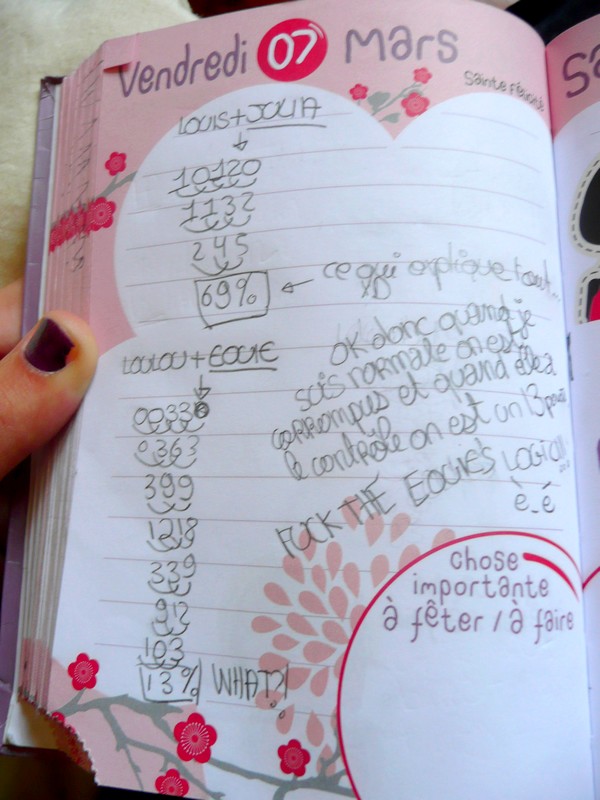 Vendredi 07 Mars
Sainte Félicité
Sa
LOUIS+JOLIA
↓
10120
1132
245
69% ← ce qui explique tout...
LOULOU+EOLIE
↓
OK donc quand je
suis normale on est
corrompus et quand elle a
le contrôle on est un 13 pour
FUCK THE EOLIE'S LOGIC!!...
è_é
0033
0363
399
1218
339
912
103
13% WHAT?!
chose
importante
à fêter / à faire